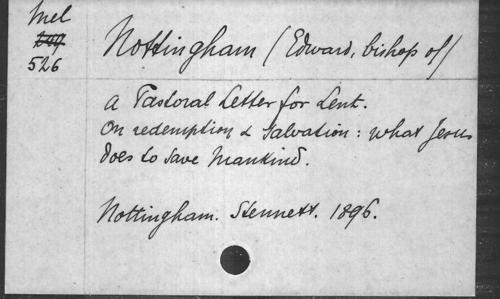 Mel
526
Nottingham (Edward, bishop of)
A Pastoral Letter for Lent.
On redemption & Salvation: what Jesus
does to save Mankind.
Nottingham. Stennett. 1896.